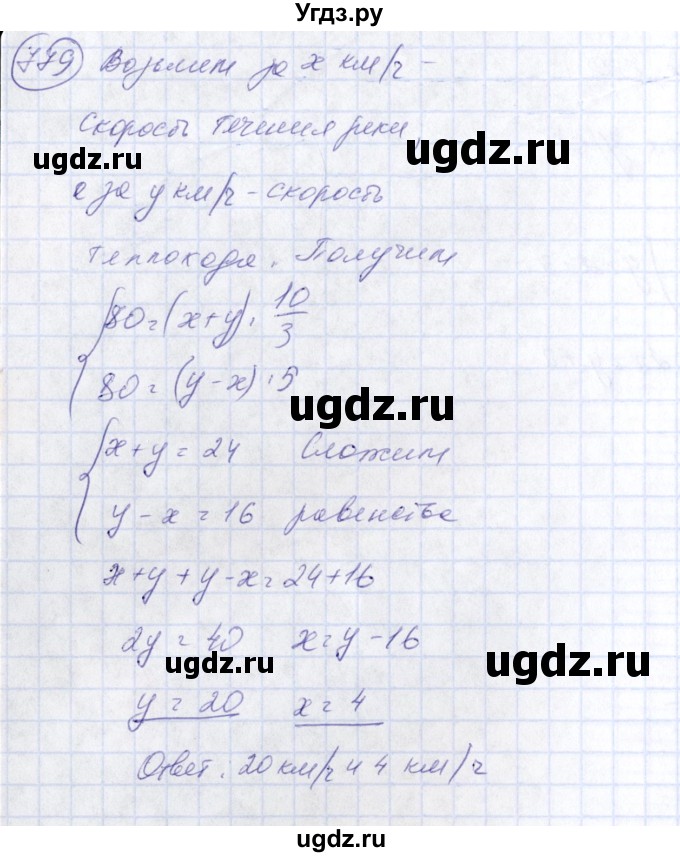 Угдз.ру
779 Возьмем за x км/ч -
скорость течения реки,
ugdz.ru
ugdz.ru
а за y км/ч - скорость
теплохода. Получим
80 = (x+y) · 10/3
80 = (y-x) · 5
ugdz.ru
x+y = 24 Сложим
y-x = 16 равенства
x+y+y-x = 24+16
2y = 40 x = y-16
ugdz.ru
ugdz.ru
y = 20 x = 4
Ответ: 20 км/ч и 4 км/ч
ugdz.ru